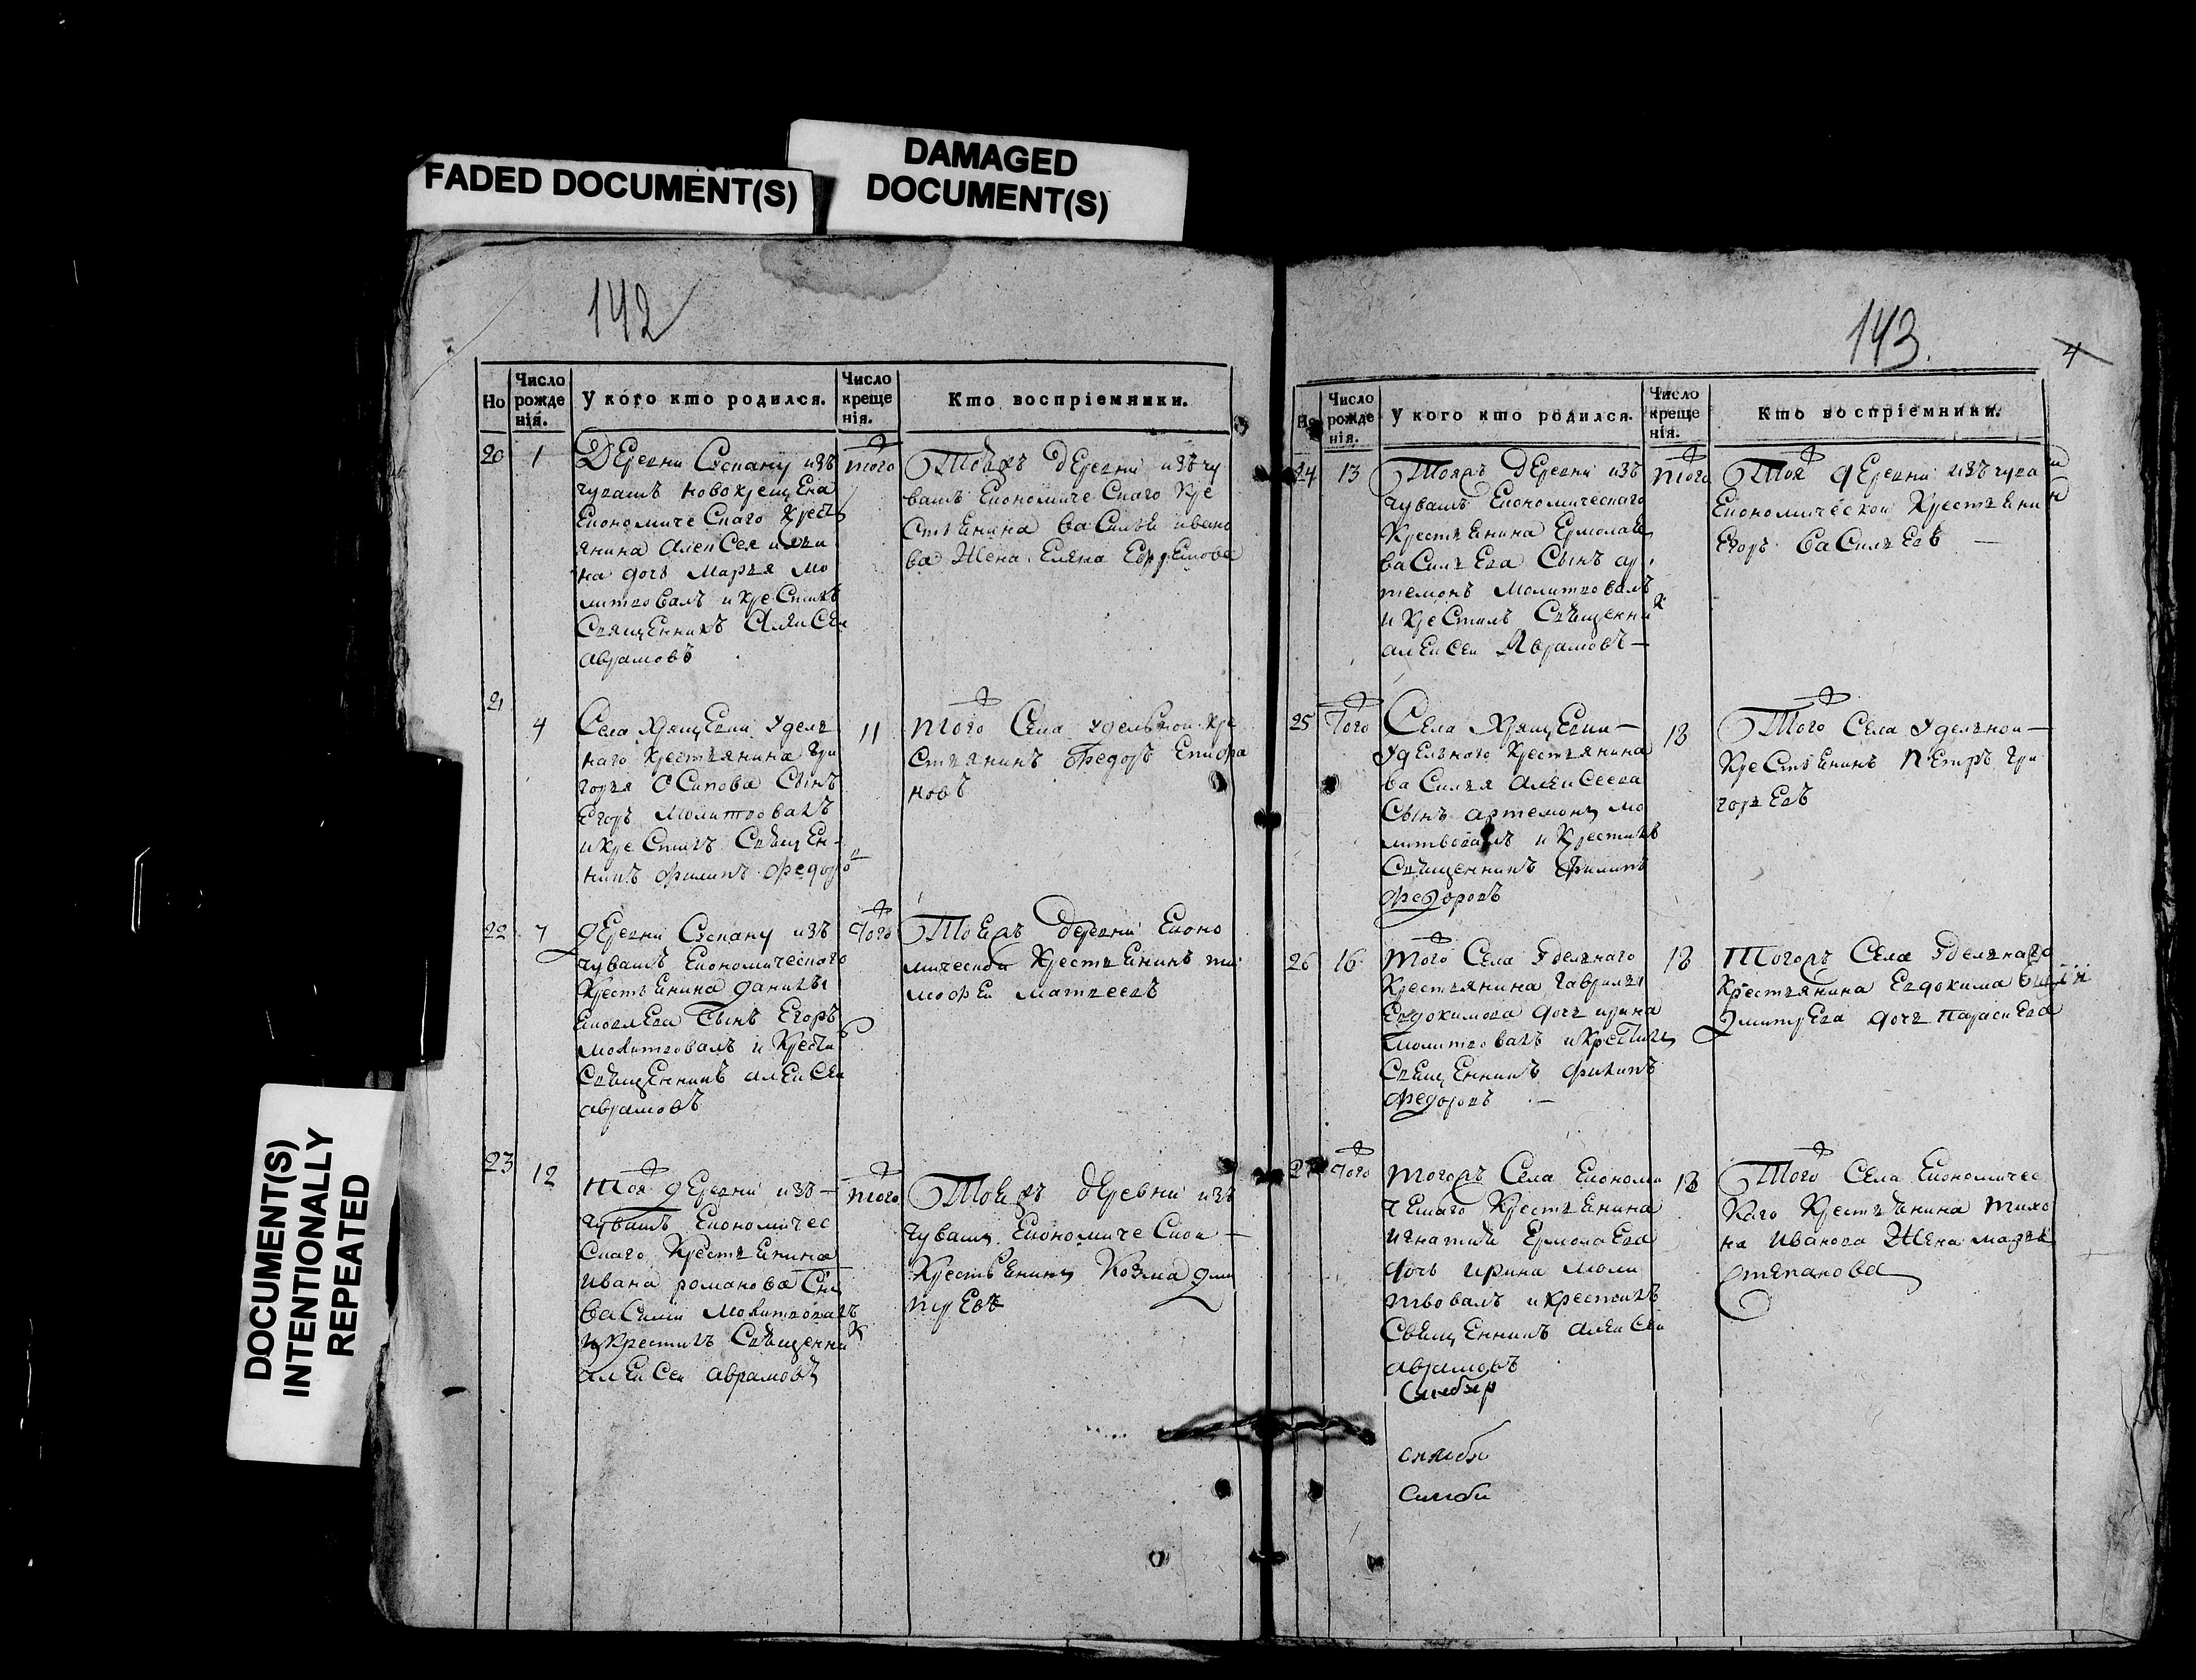 FADED DOCUMENT(S)
DAMAGED
DOCUMENT(S)
DOCUMENT(S)
INTENTIONALLY
REPEATED
142
Но
Число
рожде
нія.
У кого кто родился.
Число
креще
нія.
Кто воспріемники.
20
1
Деревни изъ
чувашъ новокрещена
Економическаго крест
янина Алексея
на дочь Марья мо
литвовалъ и крестилъ
Священникъ Алексеи
аврамовъ
того
Тоеяжъ деревни изъ чу
вашъ Економическаго кре
стьянина Василья ивано
ва жена Елена
21
4
Села Хрящевки удель
наго крестьянина Гри
горья Осипова Сынъ
Егоръ молитвовалъ
и крестилъ Священ-
никъ Филипъ Федоро
11
того Села удельнои кре
стьянинъ Федоръ Епифа
новъ
22
7
деревни изъ
чувашъ Економическаго
крестьянина данилы
Сынъ Егоръ
молитвовалъ и крести
Священникъ алексеи
аврамовъ
того
Тоеяжъ деревни Еконо
мическои крестьянинъ ти
мофеи матвеевъ
23
12
Тоя деревни изъ
чувашъ Економичес
скаго крестьянина
ивана романова Снъ
Василии молитвовалъ
и крестилъ Священник
алексеи аврамовъ
того
Тоеяжъ деревни изъ
чувашъ Економическои
крестьянинъ Козма дми
триевъ
143.
4
Но
Число
рожде
нія.
У кого кто родился.
Число
креще
нія.
Кто воспріемники.
24
13
Тояжъ деревни изъ
чувашъ Економическаго
крестьянина Ермолая
Васильева Сынъ ар
темонъ молитвовалъ
и крестилъ Священник
алексеи Аврамовъ
того
Тоя деревни изъ чува
Економическои крестьянин
Егоръ Васильевъ
25
того
Села Хрящевки
удельнаго крестьянина
Василья алексеева
Сынъ артемонъ мо
литвовалъ и крестилъ
Священникъ Филипъ
Федоровъ
18
Того Села удельнои
крестьянинъ Петръ Гри
горьевъ
26
16
того Села удельнаго
крестьянина гаврилы
Евдокимова дочь ирина
молитвовалъ и крестилъ
Священникъ Филипъ
Федоровъ
18
Тогожъ Села удельнаго
крестьянина Евдокима
дмитрева дочь парасковья
27
того
тогожъ Села Економи
ческаго крестьянина
игнатия Ермолаева
дочь ирина моли
твовалъ и крестилъ
Священникъ алексеи
аврамовъ
Симбир
симби
Симби
18
Того Села Економичес
каго крестьянина тихо
на иванова жена марья
степанова